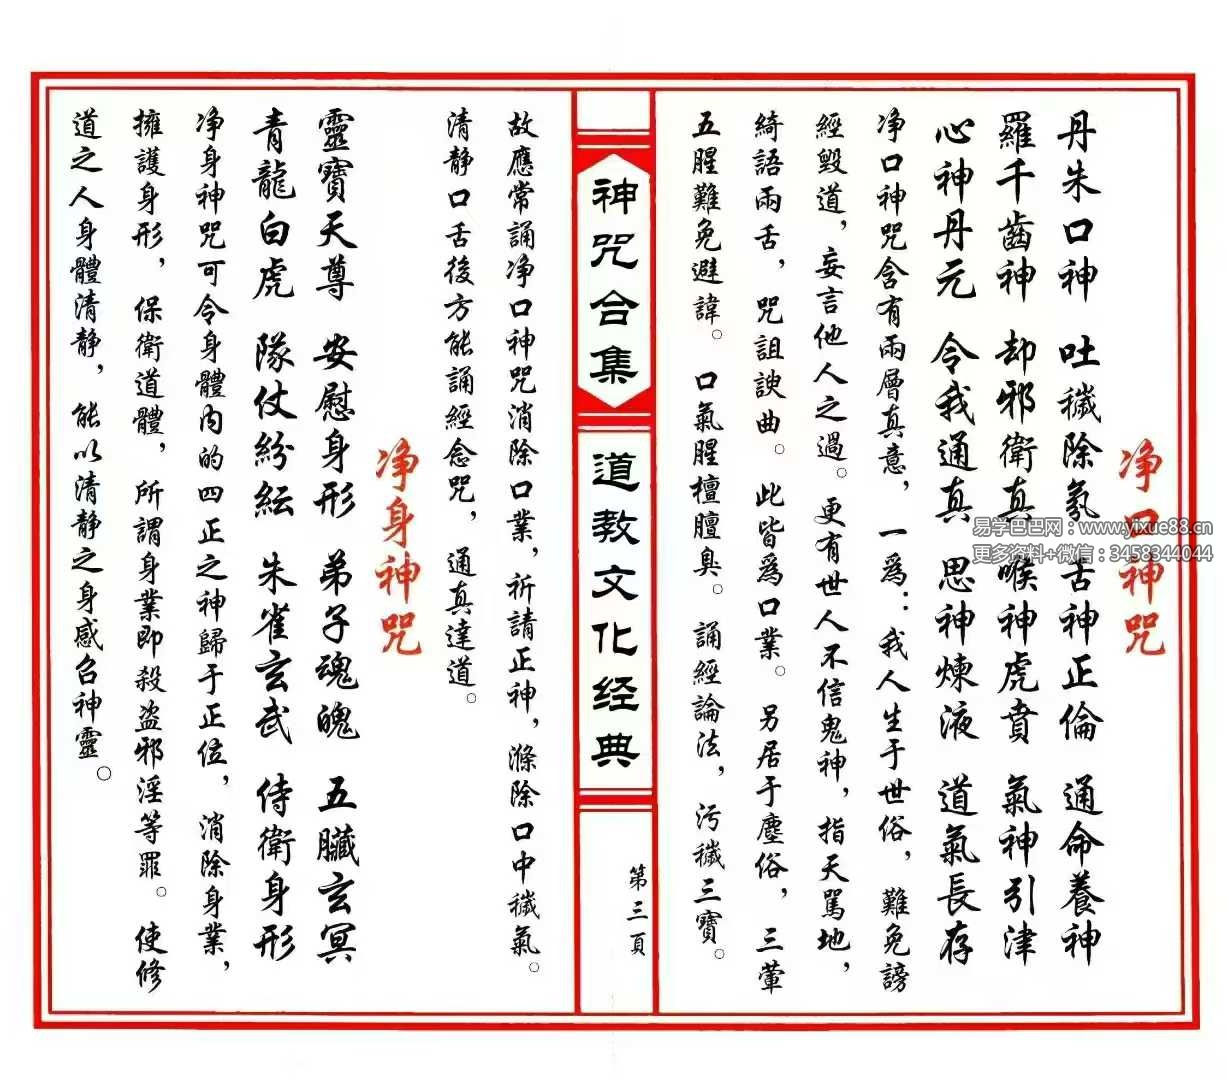 净口神咒
丹朱口神 吐穢除氛 舌神正倫 通命養神
羅千齒神 却邪衛真 喉神虎賁 氣神引津
心神丹元 令我通真 思神煉液 道氣長存
净口神咒含有兩層真意，一爲：我人生于世俗，難免謗
經毀道，妄言他人之過。更有世人不信鬼神，指天罵地，
綺語兩舌，咒詛諛曲。此皆爲口業。另居于塵俗，三葷
五腥難免避諱。口氣腥檀膻臭。誦經論法，污穢三寶。
神咒合集
道教文化经典
第三頁
故應常誦净口神咒消除口業，祈請正神，滌除口中穢氣。
清静口舌後方能誦經念咒，通真達道。
净身神咒
靈寶天尊 安慰身形 弟子魂魄 五臟玄冥
青龍白虎 隊仗紛紜 朱雀玄武 侍衛身形
净身神咒可令身體内的四正之神歸于正位，消除身業，
擁護身形，保衛道體，所謂身業即殺盗邪淫等罪。使修
道之人身體清静，能以清静之身感召神靈。
易学巴巴网：www.yixue88.cn
更多资料+微信：3458344044